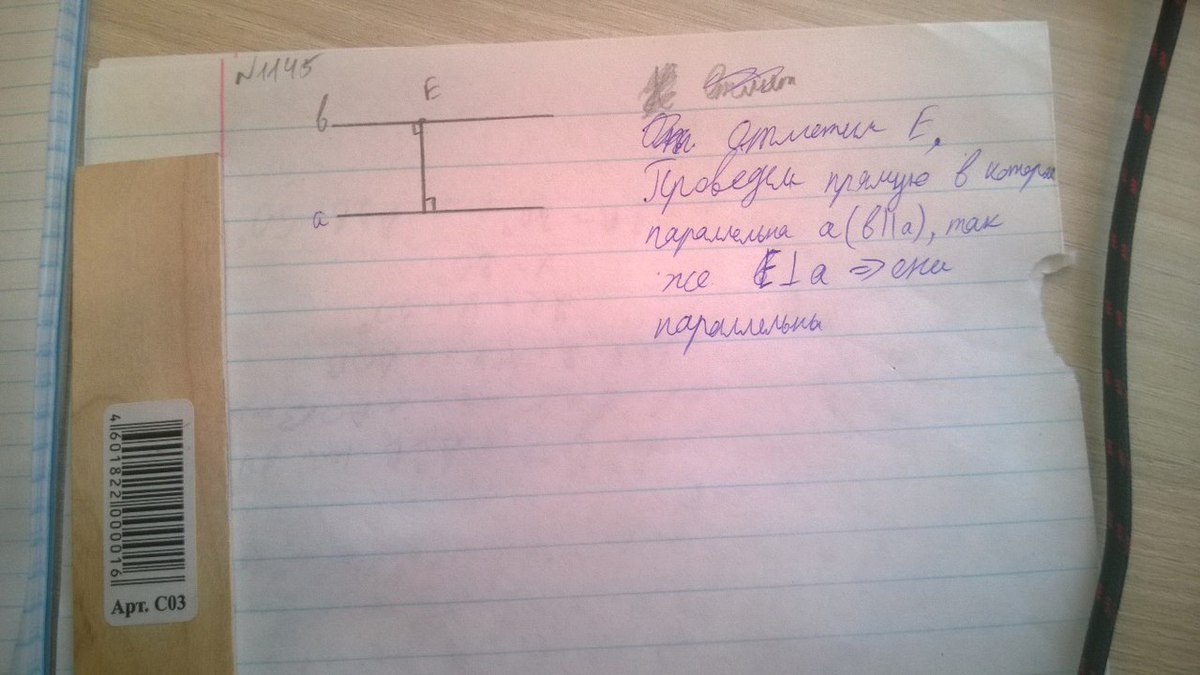 N1145
E
в
a
Отметим E.
Проведем прямую в которая
параллельна a (в||a), так
же E⊥a => они
параллельны
4601822000016
Арт. С03